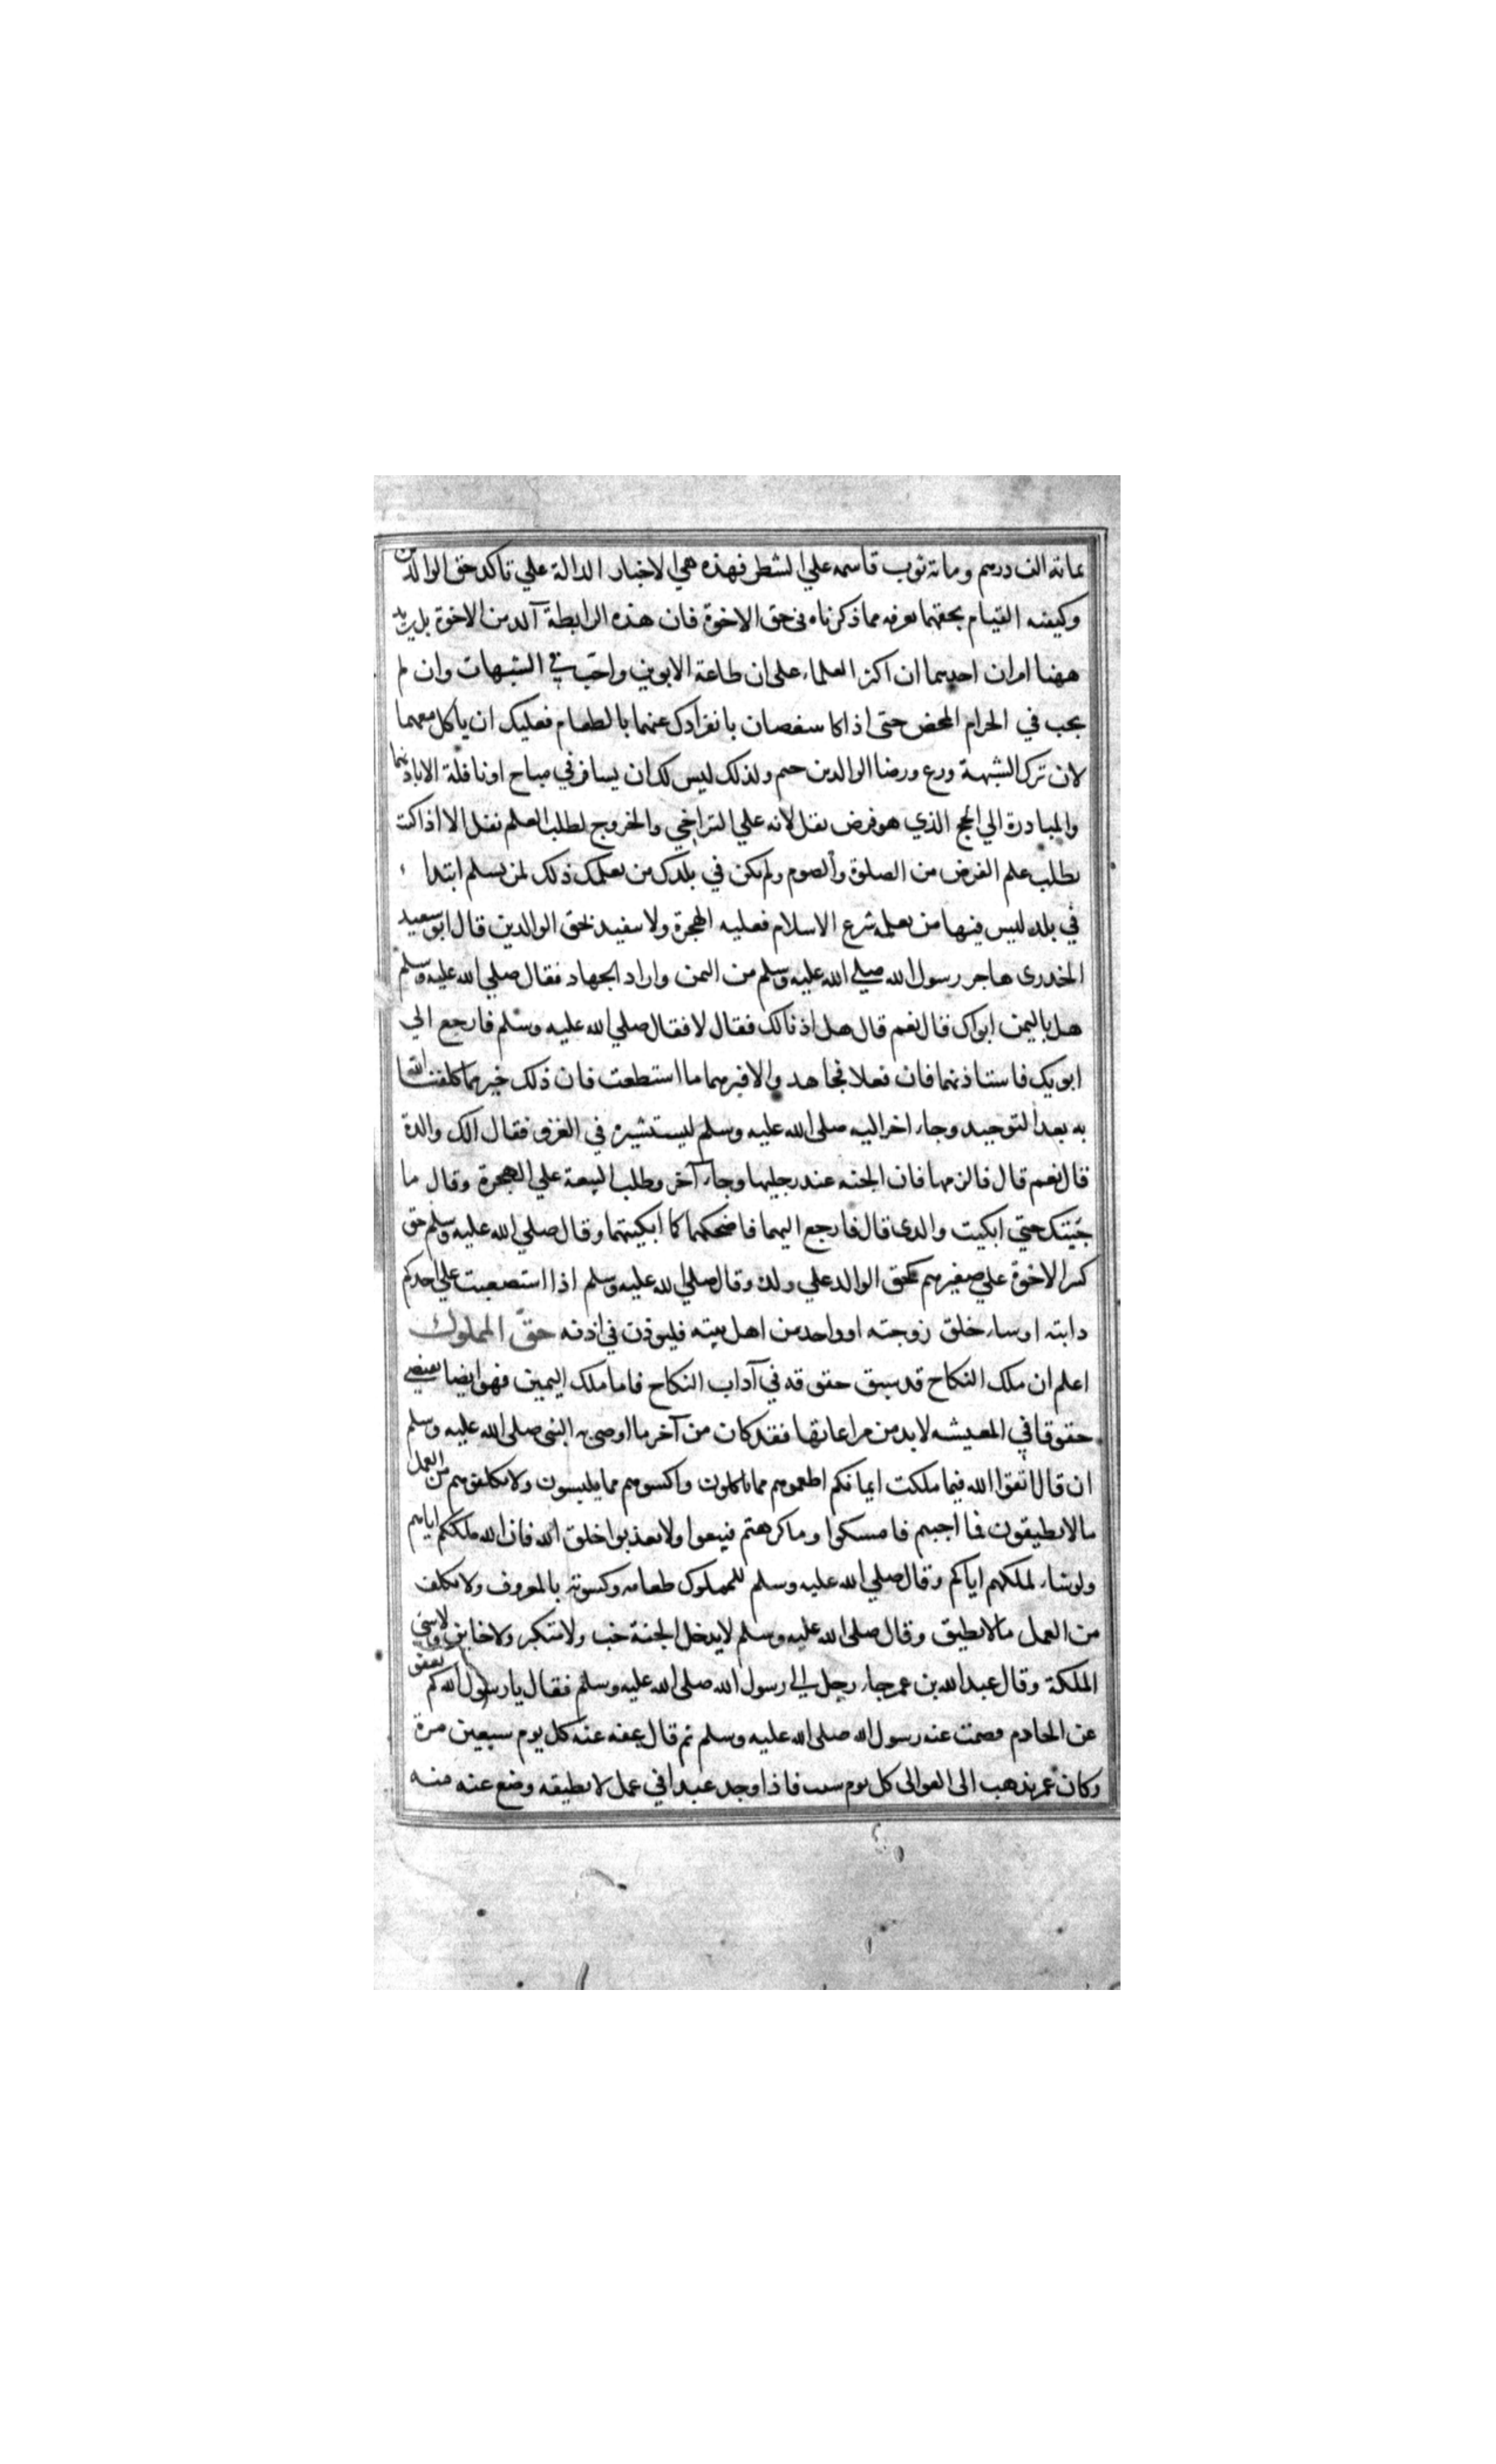 بمائه الف درهم ومائه ثوب قاسمه علي الشطر فهذه هي الاخبار الدالة علي تاكد حق الوالدين
وكيفيه القيام بحقهما تعرفه مما ذكرناه في حق الاخوة فان هذه الرابطة آكد من الاخوة بل يزيد
ههنا امران احدهما ان اكثر العلماء على ان طاعة الابوين واجب في الشبهات وان لم
يجب في الحرام المحض حتى اذا كانا ينغصان بانفرادك عنهما بالطعام فعليك ان ياكل معهما
لان ترك الشبهة ورع ورضا الوالدين حتم ولذلك ليس لك ان يسافر في مباح او نافلة الا باذنهما
والمبادرة الي الحج الذي هو فرض نفل لانه علي التراخي والخروج لطلب العلم نفل الا اذا كنت
يطلب علم الفرض من الصلوة والصوم ولم يكن في بلدك من يعلمك ذلك لمن يسلم ابتداء
في بلد ليس فيها من يعلمه شرع الاسلام فعليه الهجرة ولا يتقيد بحق الوالدين قال ابو سعيد
الخدرى هاجر رسول الله صلي الله عليه وسلم من اليمن واراد الجهاد فقال صلي الله عليه وسلم
هل باليمن ابواك قال نعم قال هل اذنا لك فقال لا فقال صلي الله عليه وسلم فارجع الي
ابويك فاستاذنهما فان فعلا فجاهد والا فبرهما ما استطعت فان ذلك خير مما كلفت الله
به بعد التوحيد وجاء اخر اليه صلى الله عليه وسلم ليستشيره في الغزو فقال الك والدة
قال نعم قال فالزمها فان الجنه عند رجليها وجاء آخر وطلب البيعة علي الهجرة وقال ما
جيتك حتي ابكيت والدى قال فارجع اليهما فاضحكهما كما ابكيتهما وقال صلي الله عليه وسلم حق
كبير الاخوة علي صغيرهم كحق الوالد علي ولده وقال صلي الله عليه وسلم اذا استصعبت علي احدكم
دابته او ساء خلق زوجته او واحد من اهل بيته فليوذن في اذنه حق المملوك
اعلم ان ملك النكاح قد سبق حقوقه في آداب النكاح فاما ملك اليمين فهو ايضا يقتضي
حقوقا في المعيشه لابد من مراعاتها فقد كان من آخر ما اوصى به النبى صلى الله عليه وسلم
ان قال اتقوا الله فيما ملكت ايمانكم اطعموهم مما تاكلون واكسوهم مما يلبسون ولا تكلفوهم من العمل
ما لا يطيقون فما احببتم فامسكوا وما كرهتم فبيعوا ولا تعذبوا خلق الله فان الله ملككم اياهم
ولو شاء لملكهم اياكم وقال صلي الله عليه وسلم للمملوك طعامه وكسوته بالمعروف ولا يكلف
من العمل ما لا يطيق وقال صلى الله عليه وسلم لا يدخل الجنة خب ولا متكبر ولا خاين ولا سيئ
الملكة وقال عبد الله بن عمر جاء رجل الي رسول الله صلى الله عليه وسلم فقال يا رسول الله كم نعفو
عن الخادم فصمت عنه رسول الله صلى الله عليه وسلم ثم قال عفه عنه كل يوم سبعين مرة
وكان عمر يذهب الى العوالى كل يوم سبت فاذا وجد عبدا في عمل لا يطيقه وضع عنه منه